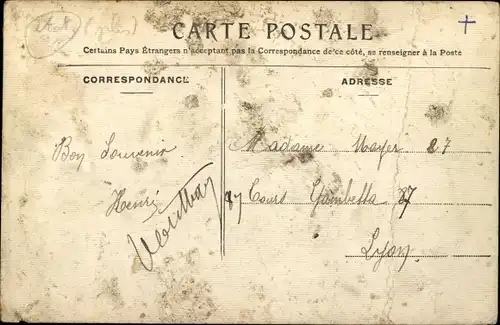 CARTE POSTALE
Certains Pays Étrangers n'acceptant pas la Correspondance de ce côté, se renseigner à la Poste
CORRESPONDANCE
ADRESSE
Bon Souvenir
Henri
Madame Mayer 27
27 Cours Gambetta 27
Lyon